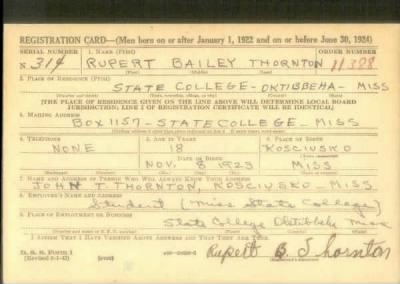 REGISTRATION CARD—(Men born on or after January 1, 1922 and on or before June 30, 1924)
SERIAL NUMBER 1. NAME (Print) ORDER NUMBER
N 314 RUPERT BAILEY THORNTON 11328
(First) (Middle) (Last)
2. PLACE OF RESIDENCE (Print)
STATE COLLEGE - OKTIBBEHA - MISS
[THE PLACE OF RESIDENCE GIVEN ON THE LINE ABOVE WILL DETERMINE LOCAL BOARD
JURISDICTION; LINE 2 OF REGISTRATION CERTIFICATE WILL BE IDENTICAL]
3. MAILING ADDRESS
BOX 1157 - STATE COLLEGE - MISS
4. TELEPHONE 5. AGE IN YEARS 6. PLACE OF BIRTH
NONE 18 KOSCIUSKO
DATE OF BIRTH
NOV. 8 1923 MISS
7. NAME AND ADDRESS OF PERSON WHO WILL ALWAYS KNOW YOUR ADDRESS
JOHN T. THORNTON, KOSCIUSKO - MISS
8. EMPLOYER'S NAME AND ADDRESS
Student (Miss State College)
9. PLACE OF EMPLOYMENT OR BUSINESS
State College Oktibbeha Miss
I AFFIRM THAT I HAVE VERIFIED ABOVE ANSWERS AND THAT THEY ARE TRUE.
D. S. S. FORM 1
(Revised 6-1-42) (over)
Rupert B. Thornton